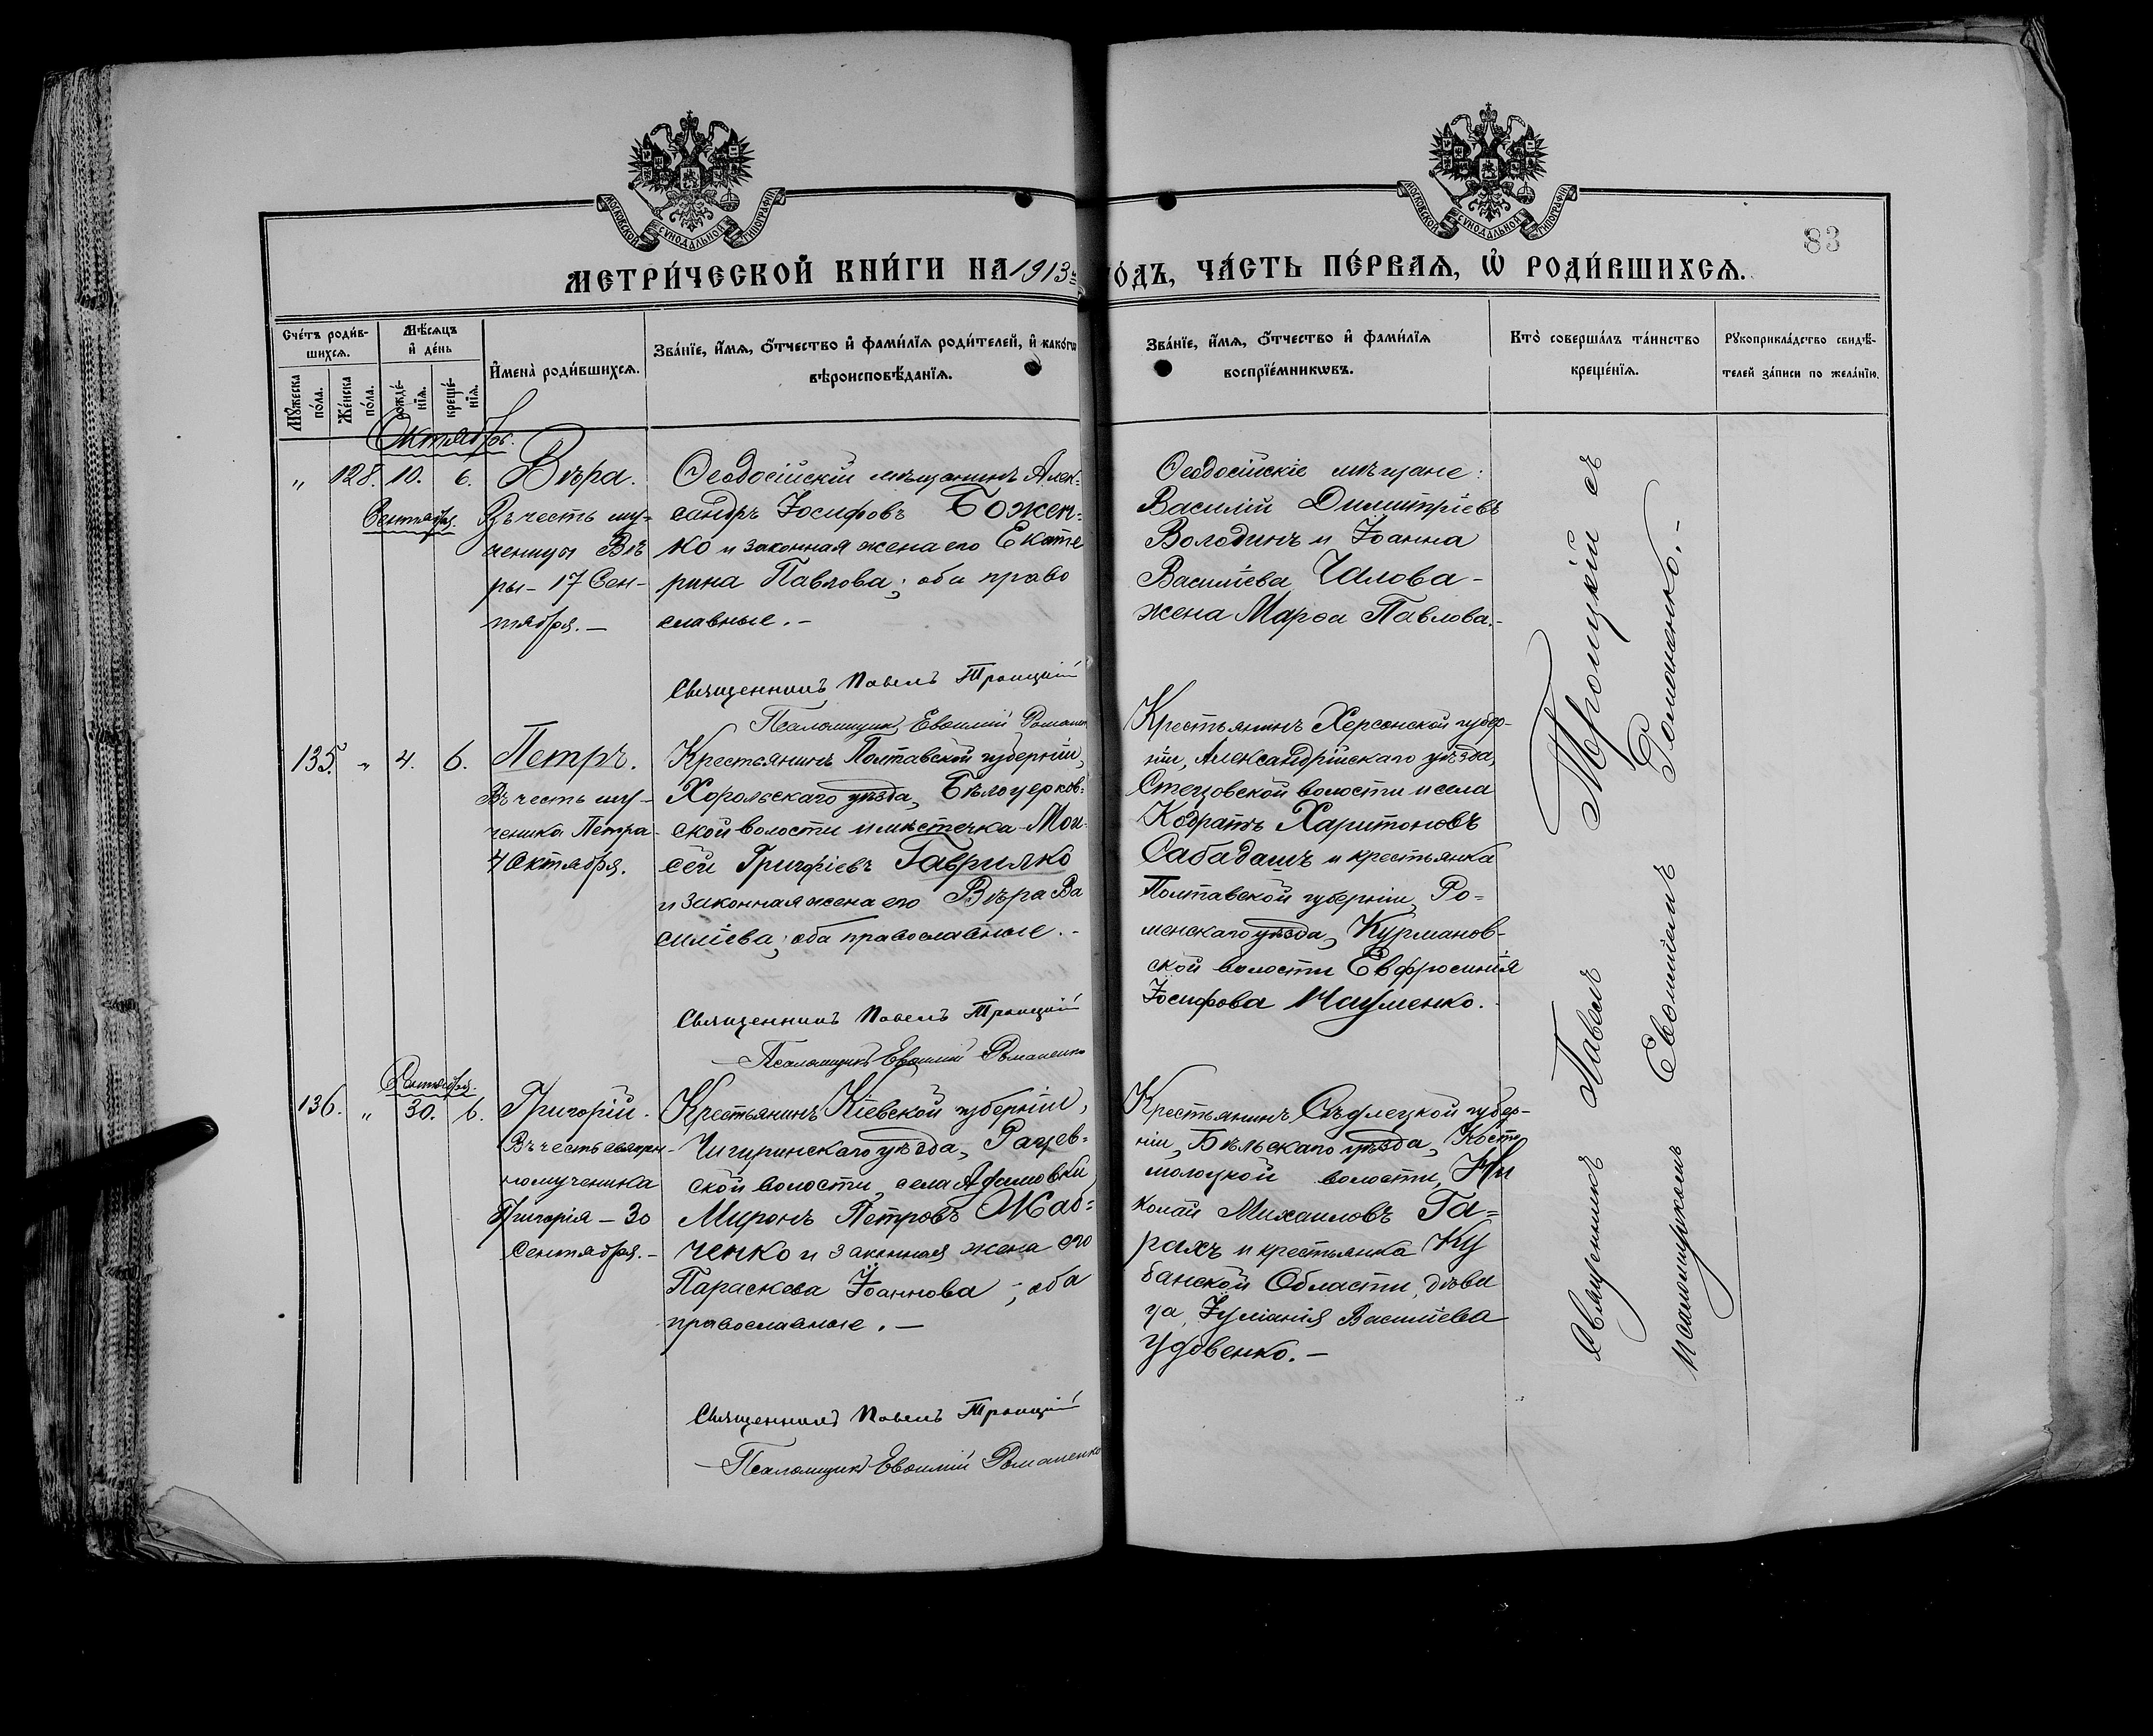 МОСКОВСКОЙ СѴНОДАЛЬНОЙ ТИПОГРАФІИ
МОСКОВСКОЙ СѴНОДАЛЬНОЙ ТИПОГРАФІИ
83
МЕТРИ́ЧЕСКОЙ КНИ́ГИ НА 1913 ГО́ДЪ, ЧА́СТЬ ПЕ́РВАѦ, Ѡ҆ РОДИ́ВШИХСѦ.
Сче́тъ роди́в-
шихсѧ.
Мꙋ́жеска по́ла.
Же́нска по́ла.
Мѣ́сѧцъ
и҆ де́нь
рожде́-нїѧ.
креще́-нїѧ.
И҆мена̀ роди́вшихсѧ.
Зва́нїе, и҆́мѧ, ѻ҆́тчество и҆ фами́лїѧ роди́телей, и҆ како́гѡ
вѣроисповѣ́данїѧ.
Зва́нїе, и҆́мѧ, ѻ҆́тчество и҆ фами́лїѧ
воспрїе́мникѡвъ.
Кто̀ соверша́лъ та́инство
креще́нїѧ.
Рꙋкоприкла́дство свидѣ́-
телей за́писи по жела́нїю.
Октябрь.
„ 128. 10. 6. Вѣра.
Сентября.
Въ честь му-
ченицы Вѣ
ры - 17 Сен-
тября. —
Ѳеодосійскій мѣщанинъ Алек-
сандръ Іосифовъ Божен=
ко и законная жена его Екате
рина Павлова; оба право
славные. —
Священникъ Павелъ Троицкій
Псаломщикъ Евѳимій Романен
Ѳеодосійскіе мѣщане:
Василій Димитріевъ
Володинъ и Іоанна
Василіева Чалова -
жена Марѳа Павлова. -
135. „ 4. 6. Петръ.
Въ честь му-
ченика Петра
4 Октября.
Крестьянинъ Полтавской губерніи,
Хорольскаго уѣзда, Бѣлоцерков=
ской волости и мѣстечка Мои
сей Григоріевъ Гаврилко
и законная жена его Вѣра Ва
силіева; оба православные. -
Священникъ Павелъ Троицкій
Псаломщикъ Евѳимій Романенко
Крестьянинъ Херсонской губер-
ніи, Александрійскаго уѣзда,
Стецовской волости и села
Кодратъ Харитоновъ
Сабадашъ и крестьянка
Полтавской губерніи, Ро=
менскаго уѣзда, Курманов-
ской волости Евфросинія
Іосифова Науменко.
Сентября.
136. „ 30. 6. Григорій.
Въ честь священ-
номученика
Григорія - 30
Сентября. -
Крестьянинъ Кіевской губерніи,
Чигиринскаго уѣзда, Рацев=
ской волости, села Адамовки
Миронъ Петровъ Жаб=
ченко и законная жена его
Параскева Іоаннова; оба
православные. —
Священникъ Павелъ Троицкій
Псаломщикъ Евѳимій Романенко
Крестьянинъ Сѣдлецкой губер-
ніи, Бѣльскаго уѣзда, Косто
молоцкой волости, Ни
колай Михаиловъ Га=
рахъ и крестьянка Ку
банской Области, дѣви
ца, Іуліанія Василіева
Удовенко. —
Священникъ Павелъ Троицкій съ
псаломщикомъ Евѳиміемъ Романенко. -